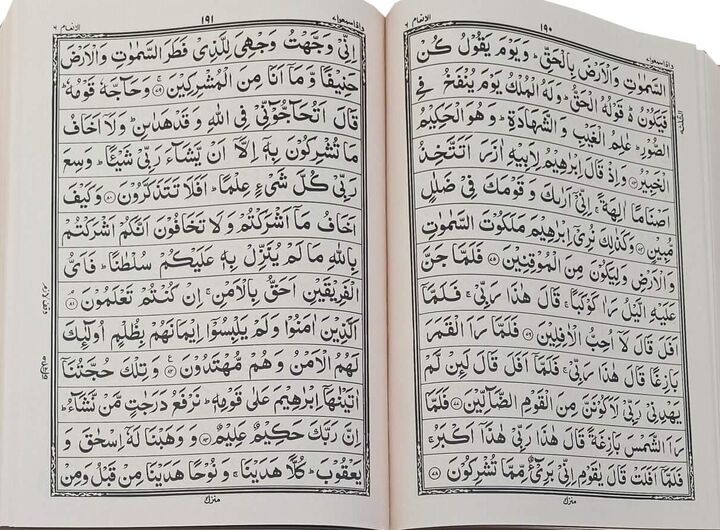 الانعام ٦
١٩٠
واذا سمعوا ٧
السَّمٰوٰتِ وَالْاَرْضَ بِالْحَقِّ ؕ وَيَوْمَ يَقُوْلُ كُنْ
فَيَكُوْنُ ؕ۬ قَوْلُهُ الْحَقُّ ؕ وَلَهُ الْمُلْكُ يَوْمَ يُنْفَخُ فِى
الصُّوْرِ ؕ عٰلِمُ الْغَيْبِ وَالشَّهَادَةِ ؕ وَهُوَ الْحَكِيْمُ
الْخَبِيْرُ ﴿۷۳﴾ وَاِذْ قَالَ اِبْرٰهِيْمُ لِاَبِيْهِ اٰزَرَ اَتَتَّخِذُ
اَصْنَامًا اٰلِهَةً ۚ اِنِّىْۤ اَرٰىكَ وَقَوْمَكَ فِىْ ضَلٰلٍ
مُّبِيْنٍ ﴿۷۴﴾ وَكَذٰلِكَ نُرِىْۤ اِبْرٰهِيْمَ مَلَكُوْتَ السَّمٰوٰتِ
وَالْاَرْضِ وَلِيَكُوْنَ مِنَ الْمُوْقِنِيْنَ ﴿۷۵﴾ فَلَمَّا جَنَّ
عَلَيْهِ الَّيْلُ رَاٰ كَوْكَبًا ۚ قَالَ هٰذَا رَبِّىْ ۚ فَلَمَّاۤ
اَفَلَ قَالَ لَاۤ اُحِبُّ الْاٰفِلِيْنَ ﴿۷۶﴾ فَلَمَّا رَاَ الْقَمَرَ
بَازِغًا قَالَ هٰذَا رَبِّىْ ۚ فَلَمَّاۤ اَفَلَ قَالَ لَئِنْ لَّمْ
يَهْدِنِىْ رَبِّىْ لَاَكُوْنَنَّ مِنَ الْقَوْمِ الضَّآلِّيْنَ ﴿۷۷﴾ فَلَمَّا
رَاَ الشَّمْسَ بَازِغَةً قَالَ هٰذَا رَبِّىْ هٰذَاۤ اَكْبَرُ ۚ
فَلَمَّاۤ اَفَلَتْ قَالَ يٰقَوْمِ اِنِّىْ بَرِىْٓءٌ مِّمَّا تُشْرِكُوْنَ ﴿۷۸﴾
منزل
الانعام ٦
١٩١
واذا سمعوا ٧
اِنِّىْ وَجَّهْتُ وَجْهِىَ لِلَّذِىْ فَطَرَ السَّمٰوٰتِ وَالْاَرْضَ
حَنِيْفًا وَّمَاۤ اَنَا مِنَ الْمُشْرِكِيْنَ ﴿۷۹﴾ۚ وَحَآجَّهٗ قَوْمُهٗ ؕ
قَالَ اَتُحَآجُّوْٓنِّىْ فِى اللّٰهِ وَقَدْ هَدٰىنِ ؕ وَلَاۤ اَخَافُ
مَا تُشْرِكُوْنَ بِهٖۤ اِلَّاۤ اَنْ يَّشَآءَ رَبِّىْ شَيْئًا ؕ وَسِعَ
رَبِّىْ كُلَّ شَىْءٍ عِلْمًا ؕ اَفَلَا تَتَذَكَّرُوْنَ ﴿۸۰﴾ وَكَيْفَ
اَخَافُ مَاۤ اَشْرَكْتُمْ وَلَا تَخَافُوْنَ اَنَّكُمْ اَشْرَكْتُمْ
بِاللّٰهِ مَا لَمْ يُنَزِّلْ بِهٖ عَلَيْكُمْ سُلْطٰنًا ؕ فَاَىُّ
الْفَرِيْقَيْنِ اَحَقُّ بِالْاَمْنِ ۚ اِنْ كُنْتُمْ تَعْلَمُوْنَ ﴿۸۱﴾ۘ
اَلَّذِيْنَ اٰمَنُوْا وَلَمْ يَلْبِسُوْۤا اِيْمَانَهُمْ بِظُلْمٍ اُولٰٓئِكَ
لَهُمُ الْاَمْنُ وَهُمْ مُّهْتَدُوْنَ ﴿۸۲﴾ؑ وَتِلْكَ حُجَّتُنَاۤ
اٰتَيْنٰهَاۤ اِبْرٰهِيْمَ عَلٰى قَوْمِهٖ ؕ نَرْفَعُ دَرَجٰتٍ مَّنْ نَّشَآءُ ؕ
اِنَّ رَبَّكَ حَكِيْمٌ عَلِيْمٌ ﴿۸۳﴾ وَوَهَبْنَا لَهٗۤ اِسْحٰقَ وَ
يَعْقُوْبَ ؕ كُلًّا هَدَيْنَا ۚ وَنُوْحًا هَدَيْنَا مِنْ قَبْلُ وَمِنْ
منزل